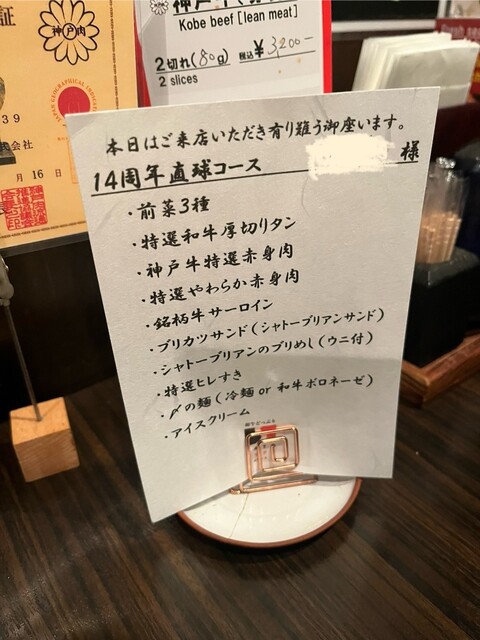 証
神戸肉
JAPAN GEOGRAPHICAL INDICATION
39
会社
月 16
Kobe beef [lean meat]
2切れ(80g) 税込 ¥3,200-
2 slices
本日はご来店いただき有り難う御座います。
14周年直球コース 様
・前菜3種
・特選和牛厚切りタン
・神戸牛特選赤身肉
・特選やわらか赤身肉
・銘柄牛サーロイン
・ブリカツサンド(シャトーブリアンサンド)
・シャトーブリアンのブリめし(ウニ付)
・特選ヒレすき
・〆の麺(冷麺 or 和牛ボロネーゼ)
・アイスクリーム